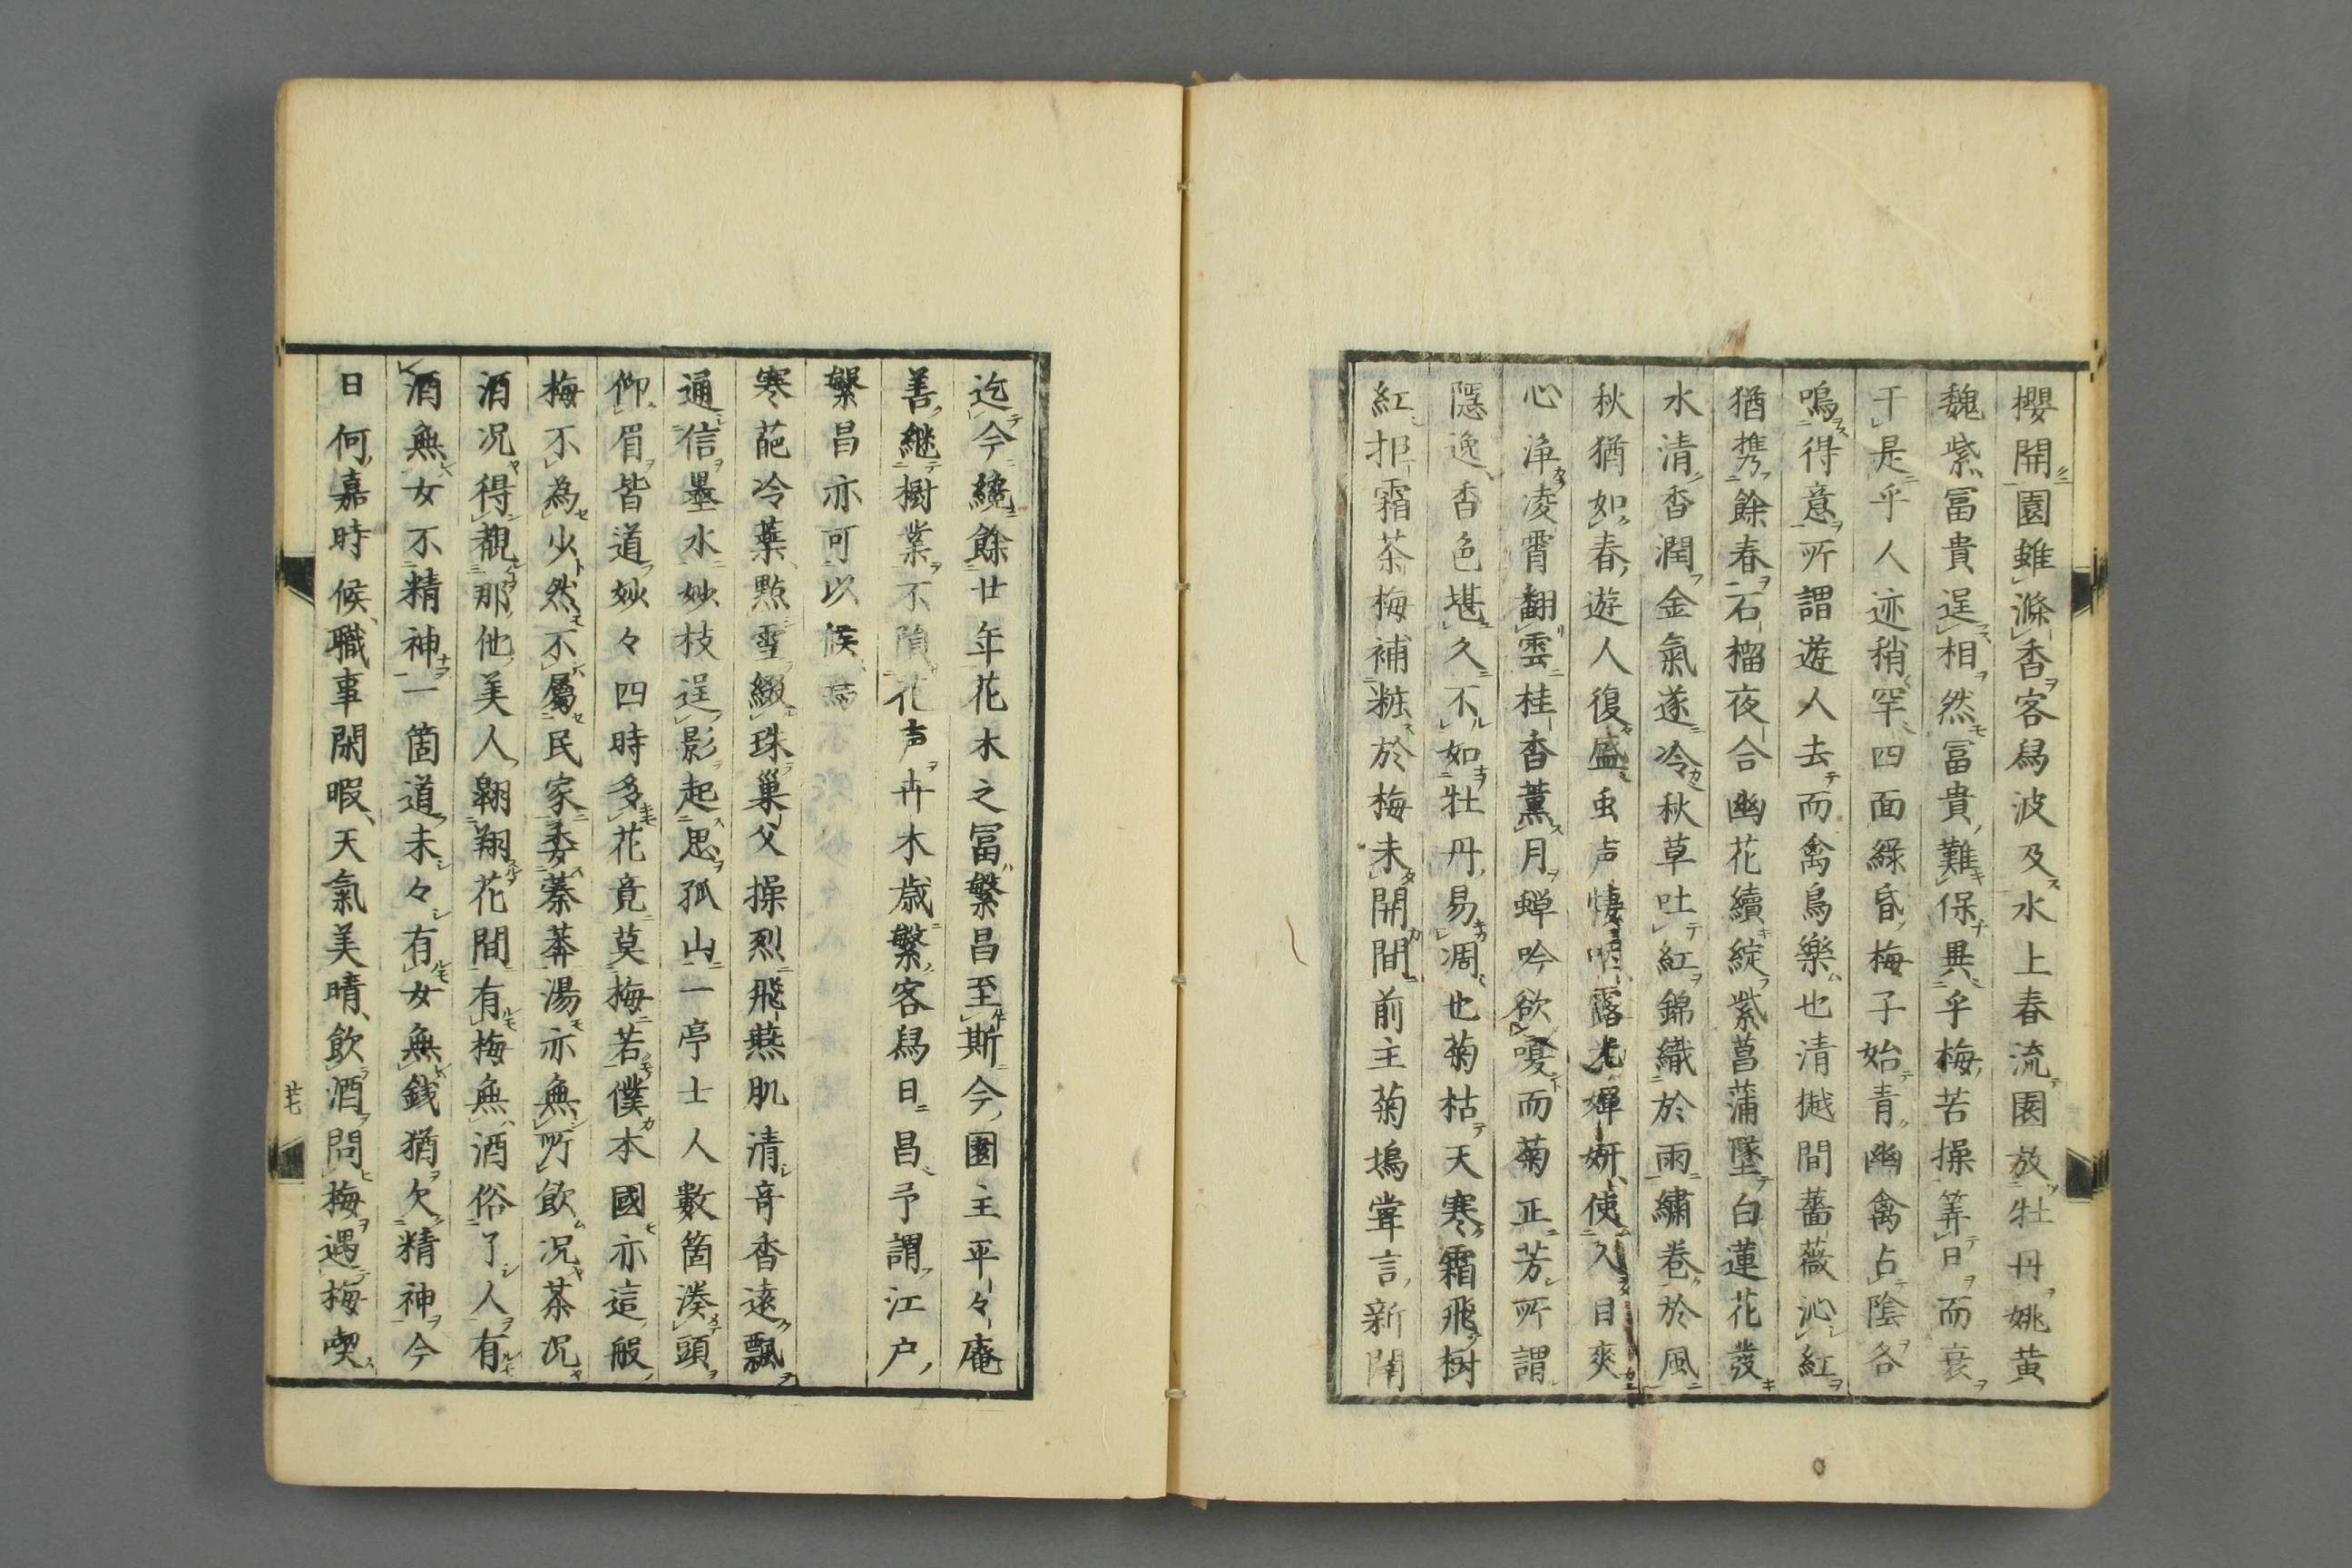 櫻開園雖滌香客舄波及水上春流園放牡丹姚黄
魏紫冨貴逞相然冨貴難保異乎梅苦操筭日而衰
于是乎人迹稍罕四面綠昏梅子始青幽禽占陰各
鳴得意所謂遊人去而禽鳥樂也清樾間薔薇沁紅
猶携餘春石榴夜合幽花續綻紫菖蒲墜白蓮花發
水清香潤金氣遂冷秋草吐紅錦織於雨繡巻於風
秋猶如春遊人復盛虫声悽咽露光嬋妍使人目爽
心浄凌霄翻雲桂香薫月蝉吟欲嗄而菊正芳所謂
隱逸香色堪久不如牡丹易凋也菊枯天寒霜飛樹
紅拒霜茶梅補粧於梅未開間前主菊塢甞言新闢
迄今纔餘廿年花木之冨繁昌至斯今園主平々庵
善継樹業不隕花声卉木歳繁客舄日昌予謂江戸
繁昌亦可以候
寒葩冷蘂點雪綴珠巢父操烈飛燕肌清竒香遠飄
通信墨水妙枝逞影起思孤山一亭士人數箇湊頭
仰眉皆道妙々四時多花竟莫梅若僕本國亦這般
梅不為少然不屬民家委蓁莽湯亦無所飲况茶况
酒况得覩那他美人翺翔花間有梅無酒俗了人有
酒無女不精神一箇道未々有女無銭猶欠精神今
日何嘉時候職事閑暇天氣美晴飲酒問梅遇梅喫